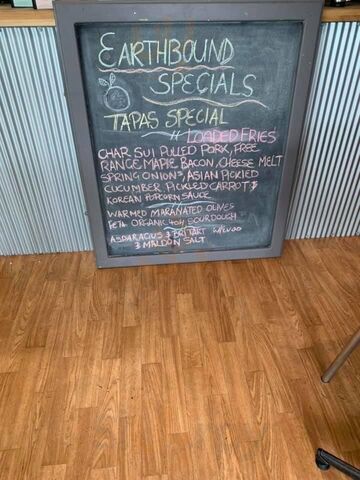 EARTHBOUND
SPECIALS
TAPAS SPECIAL
LOADED FRIES
CHAR SUI PULLED PORK, FREE
RANGE MAPLE BACON, CHEESE MELT
SPRING ONIONS, ASIAN PICKLED
CUCUMBER PICKLED CARROT &
KOREAN POPCORN SAUCE
WARMED MARANATED OLIVES
FETA ORGANIC SOURDOUGH
& W/EVOO
& MALDON SALT